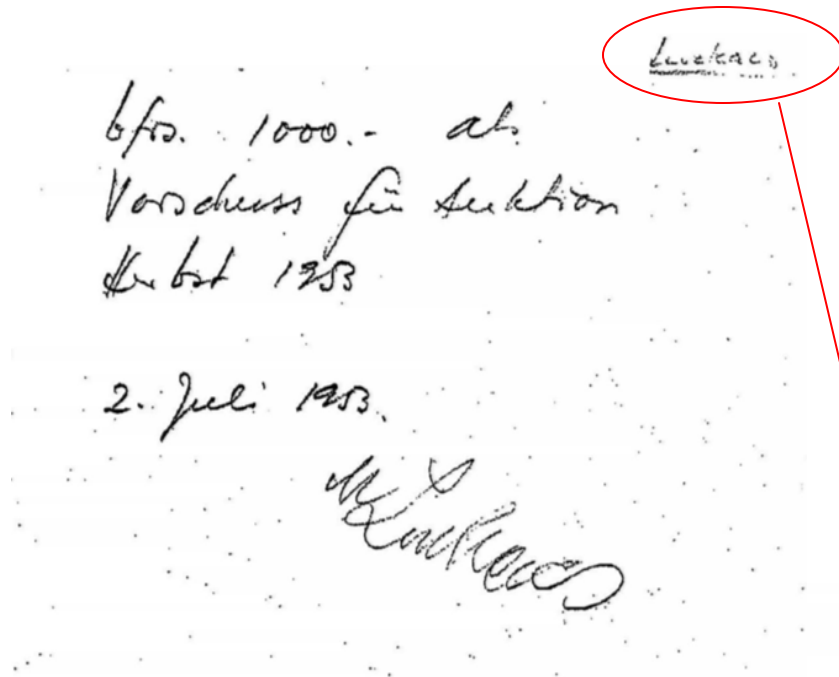 Lukacs
bfrs. 1000.- als
Vorschuss für Auktion
Herbst 1953
2. Juli 1953.
M Lukacs